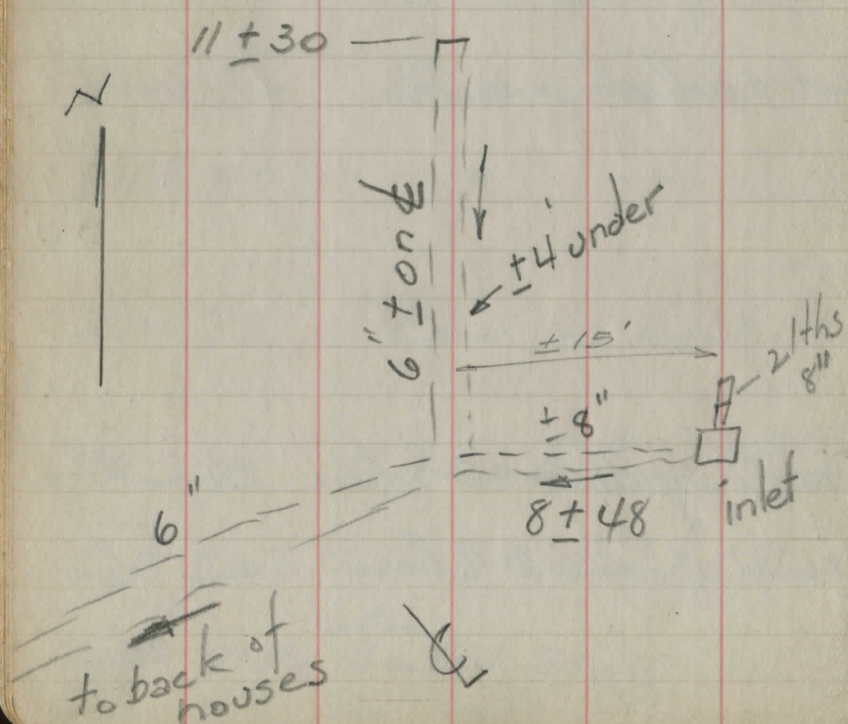 11 ± 30
N
6" ± on ℄
±4' under
± 15'
2 lths
8"
± 8"
8 ± 48
inlet
6"
℄
to back of
houses